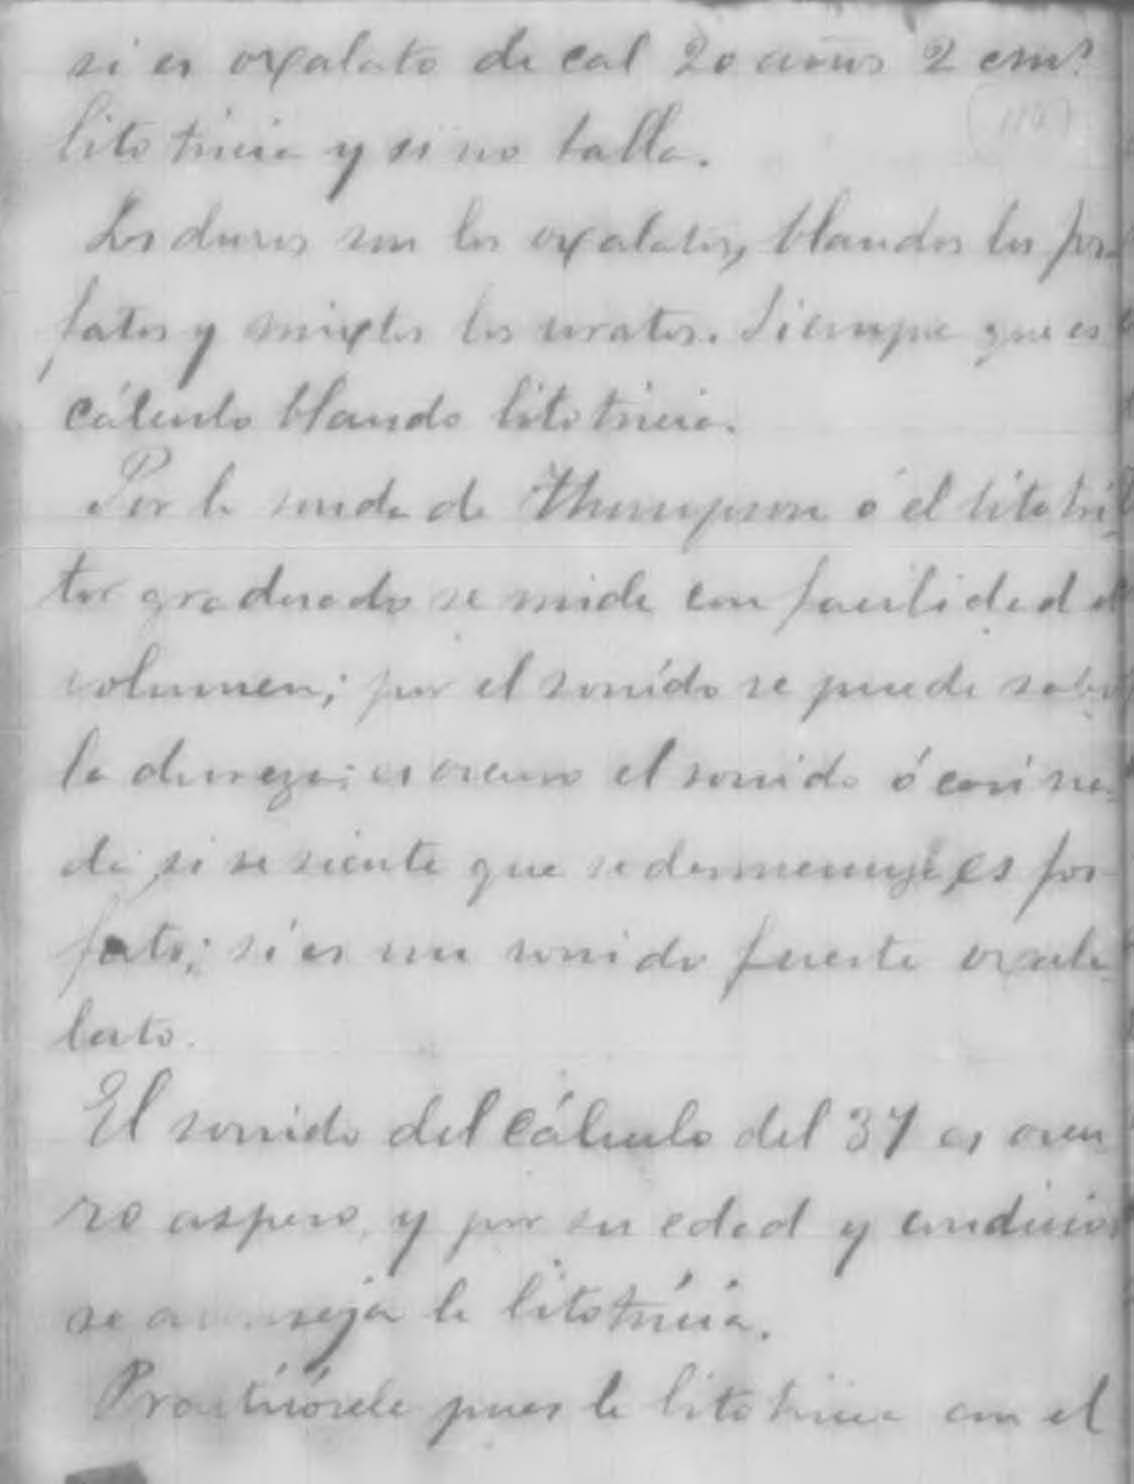 si es oxalato de cal 20 años 2 cms.
litotricia y si no talla.
Los duros son los oxalatos, blandos los fos-
fatos y mixtos los uratos. Siempre que es
cálculo blando litotricia.
Por la sonda de Thompson ó el litotri-
tor graduado se mide con facilidad el
volumen; por el sonido se puede saber
la dureza; es oscuro el sonido ó casi na-
da si se siente que se desmenuza, es fos-
fato; si es un sonido fuerte oxala-
lato.
El sonido del cálculo del 37 es oscu
ro aspero, y por su edad y condicion
se aconseja la litotricia.
Practicósele pues la litotricia con el